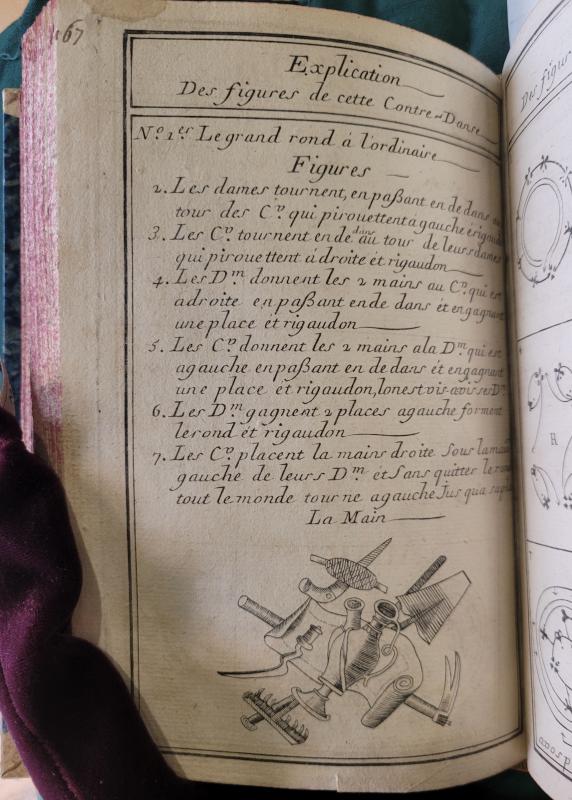 167
Explication
Des figures de cette Contre-Danse
N.º 1.er Le grand rond á l'ordinaire
Figures
2. Les dames tournent, en paßant en de dans au
tour des C.rs qui pirouettent á gauche et rigaudon
3. Les C.rs tournent en de dans au tour de leurs dames
qui pirouettent á droite ét rigaudon
4. Les D.m donnent les 2 mains au C.r qui est
a droite en paßant en de dans ét en gagnant
une place ét rigaudon
5. Les C.rs donnent les 2 mains a la D.m qui est
a gauche en paßant en de dans ét en gagnant
une place ét rigaudon, lon est vis-avis ses D.m
6. Les D.m gagnent 2 places a gauche forment
le rond ét rigaudon
7. Les C.rs placent la mains droite Sous la main
gauche de leurs D.m ét Sans quitter le rond
tout le monde tourne a gauche Jus qua sa place
La Main
Des figur
H